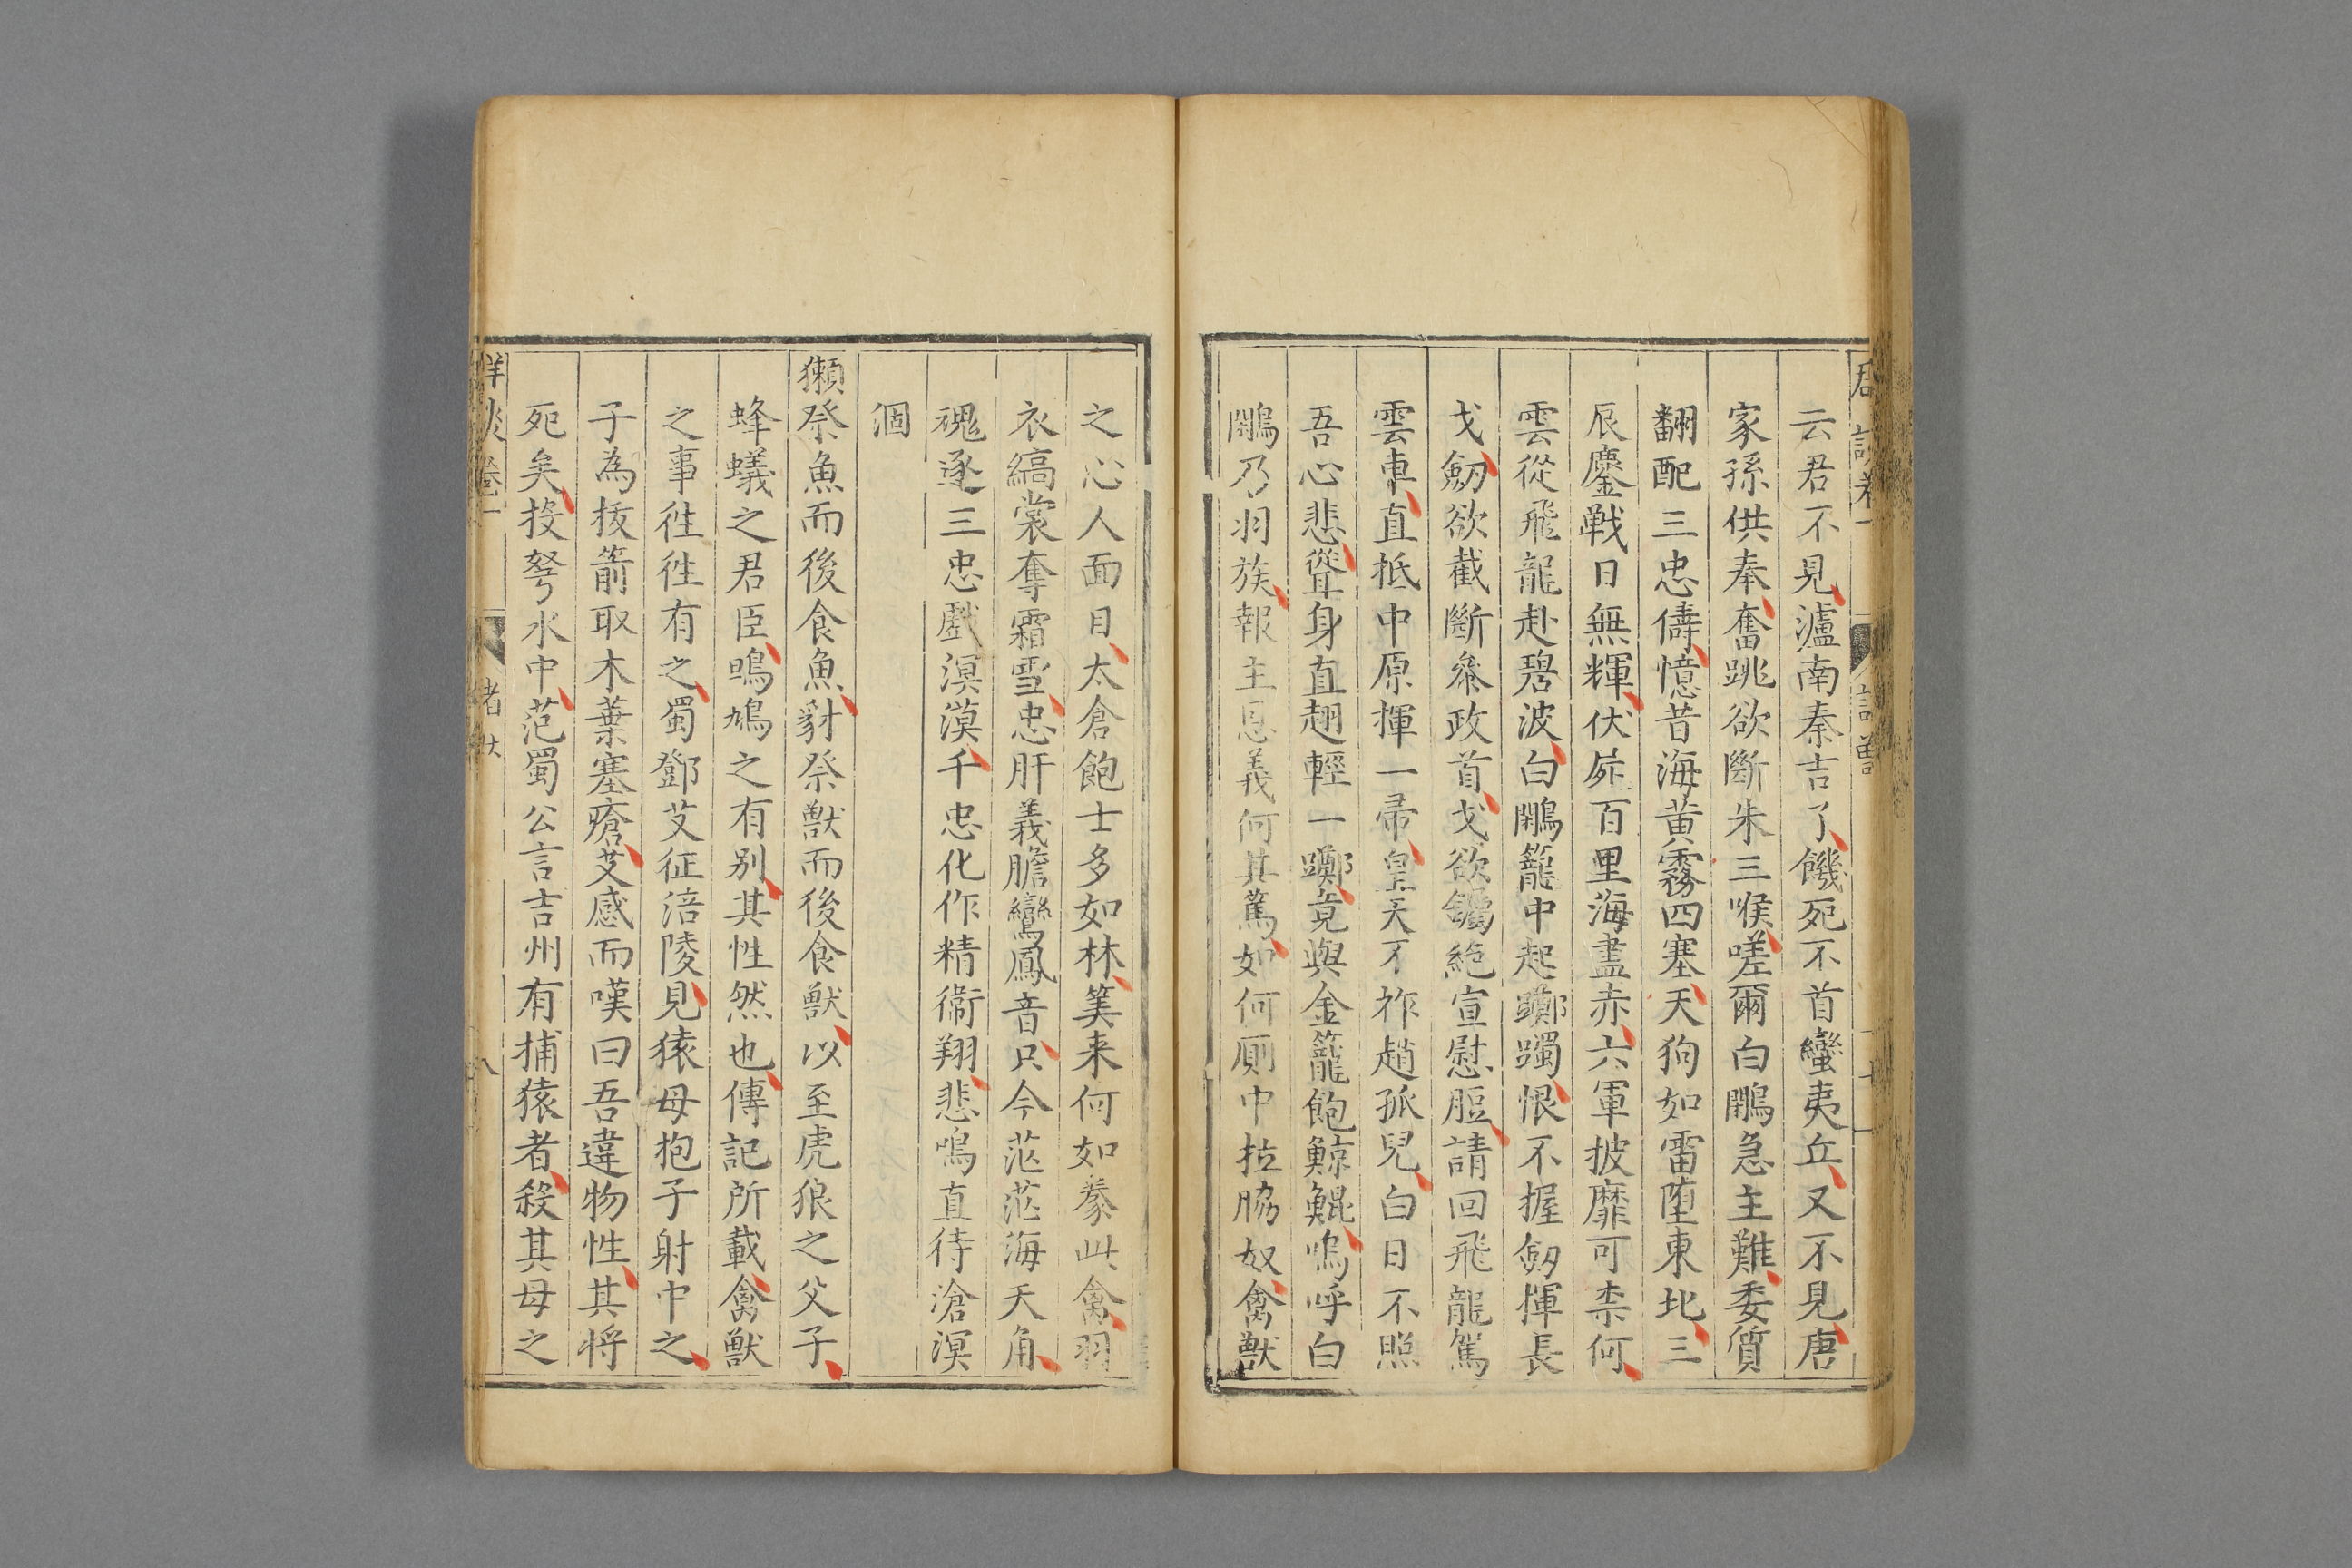 云君不見瀘南秦吉了饑死不首蠻夷丘又不見唐
家孫供奉奮跳欲斷朱三喉嗟爾白鷴急主難委質
翻配三忠儔憶昔海黄霧四塞天狗如雷堕東北三
辰鏖戰日無輝伏屍百里海盡赤六軍披靡可柰何
雲從飛龍赴碧波白鷴籠中起躑躅恨不握劒揮長
戈劒欲截斷叅政首戈欲钃絶宣慰脰請回飛龍駕
雲車直抵中原揮一帚皇天不祚趙孤兒白日不照
吾心悲聳身直翅輕一躑竟與金籠飽鯨鯤嗚呼白
鷴乃羽族報主恩義何其篤如何厠中拉脇奴禽獸
之心人面目太倉飽士多如林筭来何如豢此禽羽
衣縞裳奪霜雪忠肝義膽鸞鳳音只今茫茫海天角
魂逐三忠戯溟漠千忠化作精衞翔悲鳴直待滄溟
涸
獺祭魚而後食魚豺祭獸而後食獸以至虎狼之父子
蜂蟻之君臣鳴鳩之有别其性然也傳記所載禽獸
之事徃徃有之蜀鄧艾征涪陵見猿母抱子射中之
子為㧞箭取木葉塞瘡艾感而嘆曰吾違物性其将
死矣投弩水中范蜀公言吉州有捕猿者殺其母之
卷一
八